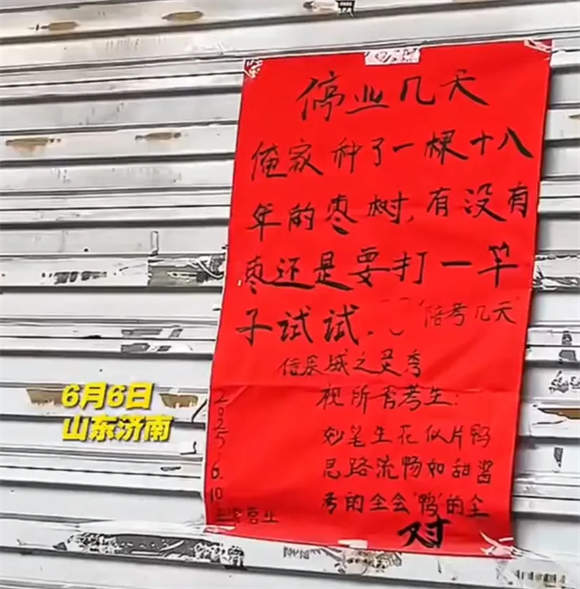 停业几天
俺家种了一棵十八
年的枣树,有没有
枣还是要打一竿
子试试.
"陪考几天"
借泉城之灵秀
祝所有考生:
妙笔生花似片鸭
思路流畅如甜酱
考的全会"鸭"的全
对
2025.6.10
营业
6月6日
山东济南